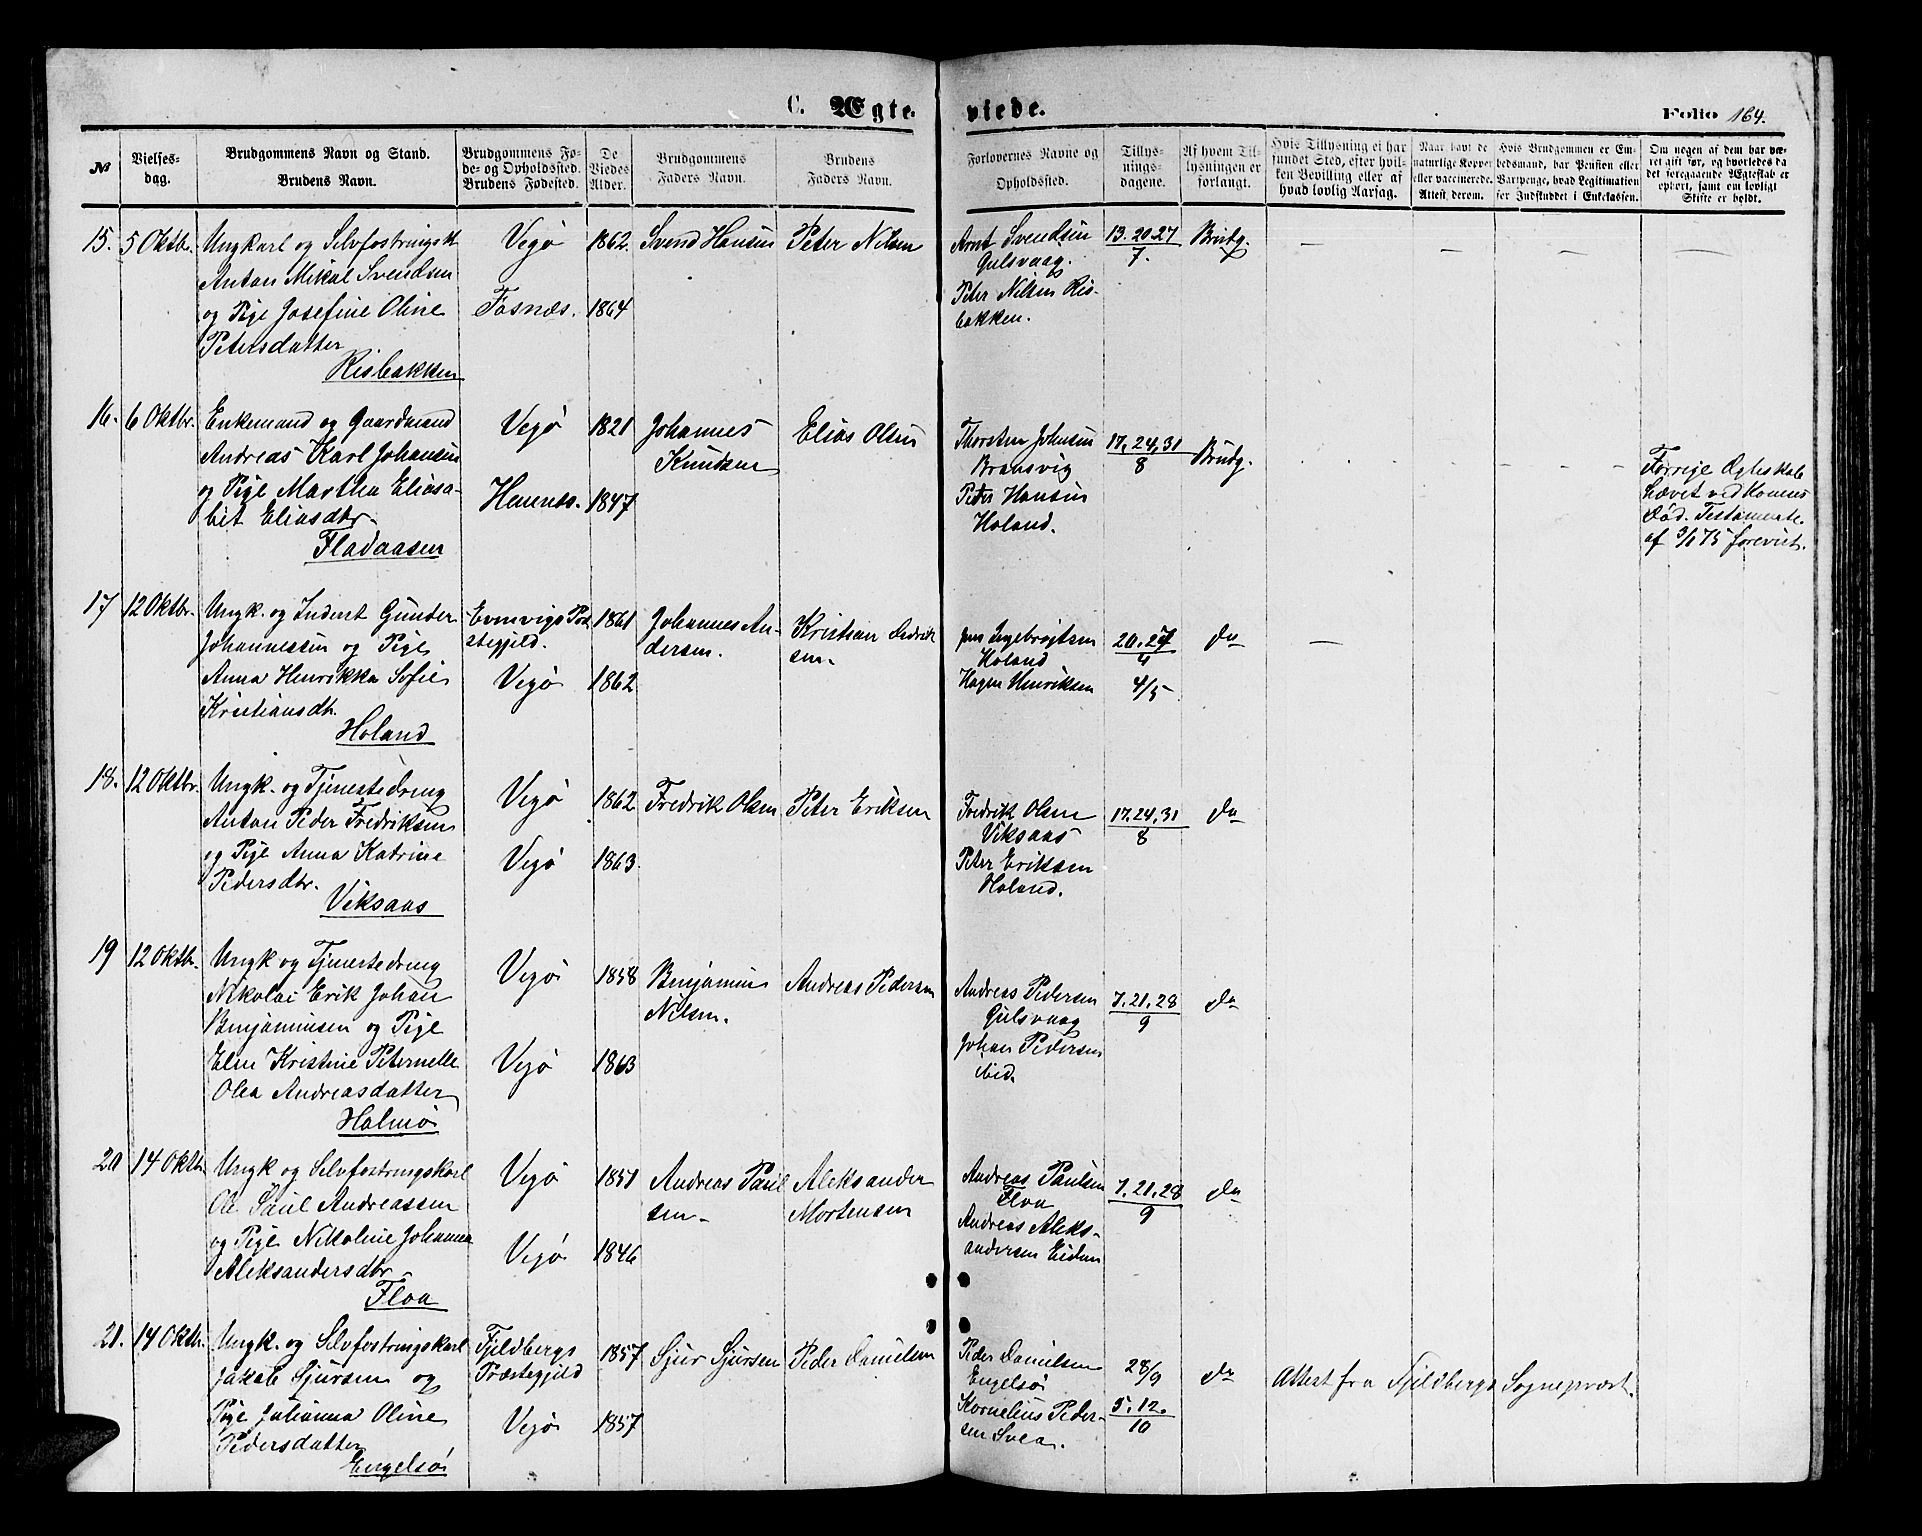 C. Ægte-
viede.
Folio 164.
№
Vielses-
dag.
Brudgommens Navn og Stand.
Brudens Navn.
Brudgommens Fø-
de- og Opholdssted.
Brudens Fødested.
De
Viedes
Alder.
Brudgommens
Faders Navn.
Brudens
Faders Navn.
Forlovernes Navne og
Opholdssted.
Tillys-
nings-
dagene.
Af hvem Til-
lysningen er
forlangt.
Hvis Tillysning ei har
fundet Sted, efter hvil-
ken Bevilling eller af
hvad lovlig Aarsag.
Naar havt de
naturlige Kopper
eller vaccinerede.
Attest derom.
Hvis Brudgommen er En-
bedsmand, har Pension eller
Vartpenge, hvad Legitimation
for Indskuddet i Enkekassen.
Om nogen af dem har væ-
ret gift før, og hvorledes da
det foregaaende Ægteskab er
ophørt, samt om lovligt
Skifte er holdt.
15. 5 Oktbr.
Ungkarl og Selvfostringsk
Anton Mikal Svendsen
og Pige Josefine Oline
Petersdatter
Risbakken
Vegø
Fosnæs.
1862.
1864
Svend Hansen
Peter Nilsen
Arnt Svendsen
Gulsvaag.
Peter Nilsen Ris-
bakken.
13. 20. 27
7.
Brudg.
— — — —
16. 6 Oktbr.
Enkemand og Gaardmand
Andreas Karl Johansen
og Pige Martha Eliasa-
bet Eliasdtr.
Fladaasen
Vegø
1821
1847
Johannes
Knudsen
Elias Olsen
Thorsten Johnsen
Peter Hansen
Holand.
17, 24, 31
8
Brudg.
Forrige Ægteskab
hævet ved Konens
Død. Testamente
af 3/1 75 forevist.
17 12 Oktbr.
Ungk. og Inderst Gunder
Johannessen og Pige
Anna Henrikka Sofie
Kristiansdtr.
Holand
Evenvigs Præ
stegjeld.
Vegø
1861
1862
Johannes An-
dersen.
Kristian Dedrik
sen.
Jens Ingebrigtsen
Holand
Hagen Henriksen
20. 27
4
4/5
Do
—
18. 12 Oktbr.
Ungk. og Tjenestedreng
Anton Peder Fredriksen
og Pige Anna Katrine
Pedersdtr.
Viksaas
Vegø
Vegø
1862
1863.
Fredrik Olsen
Peter Eriksen
Fredrik Olsen
Viksaas
Peter Eriksen
Holand.
17. 24. 31
8
Do
19 12 Oktbr.
Ungk og Tjenestedreng
Nikolai Erik Johan
Benjaminsen og Pige
Elen Kristine Peternelle
Olea Andreasdatter
Holmø
Vegø
Vegø
1858
1863
Benjamin
Nilsen.
Andreas Pedersen
Andreas Pedersen
Gulsvaag
Johan Pedersen
ibid.
7. 21. 28
9
Do
20 14 Oktbr.
Ungk og Selvfostringskarl
Ole Paul Andreassen
og Pige Nikoline Johanna
Aleksandersdtr
Floa
Vegø
Vegø
1851
1846
Andreas Paul
sen.
Aleksander
Mortensen
Andreas Paulsen
Floa
Andreas Aleks-
andersen Eidem
7. 21. 28
9
Do
21. 14 Oktbr.
Ungk. og Selvfostringskarl
Jakob Sjursen og
Pige Julianna Oline
Pedersdatter
Engelsø
Fjeldbergs
Præstegjeld
Vegø
1857
1857
Sjur Sjursen
Peder Danielsen
Peder Danielsen
Engelsø
Kornelius Peder-
sen Svea.
28/9
5. 12.
10
Do
Attest fra Fjeldbergs Sognepræst.